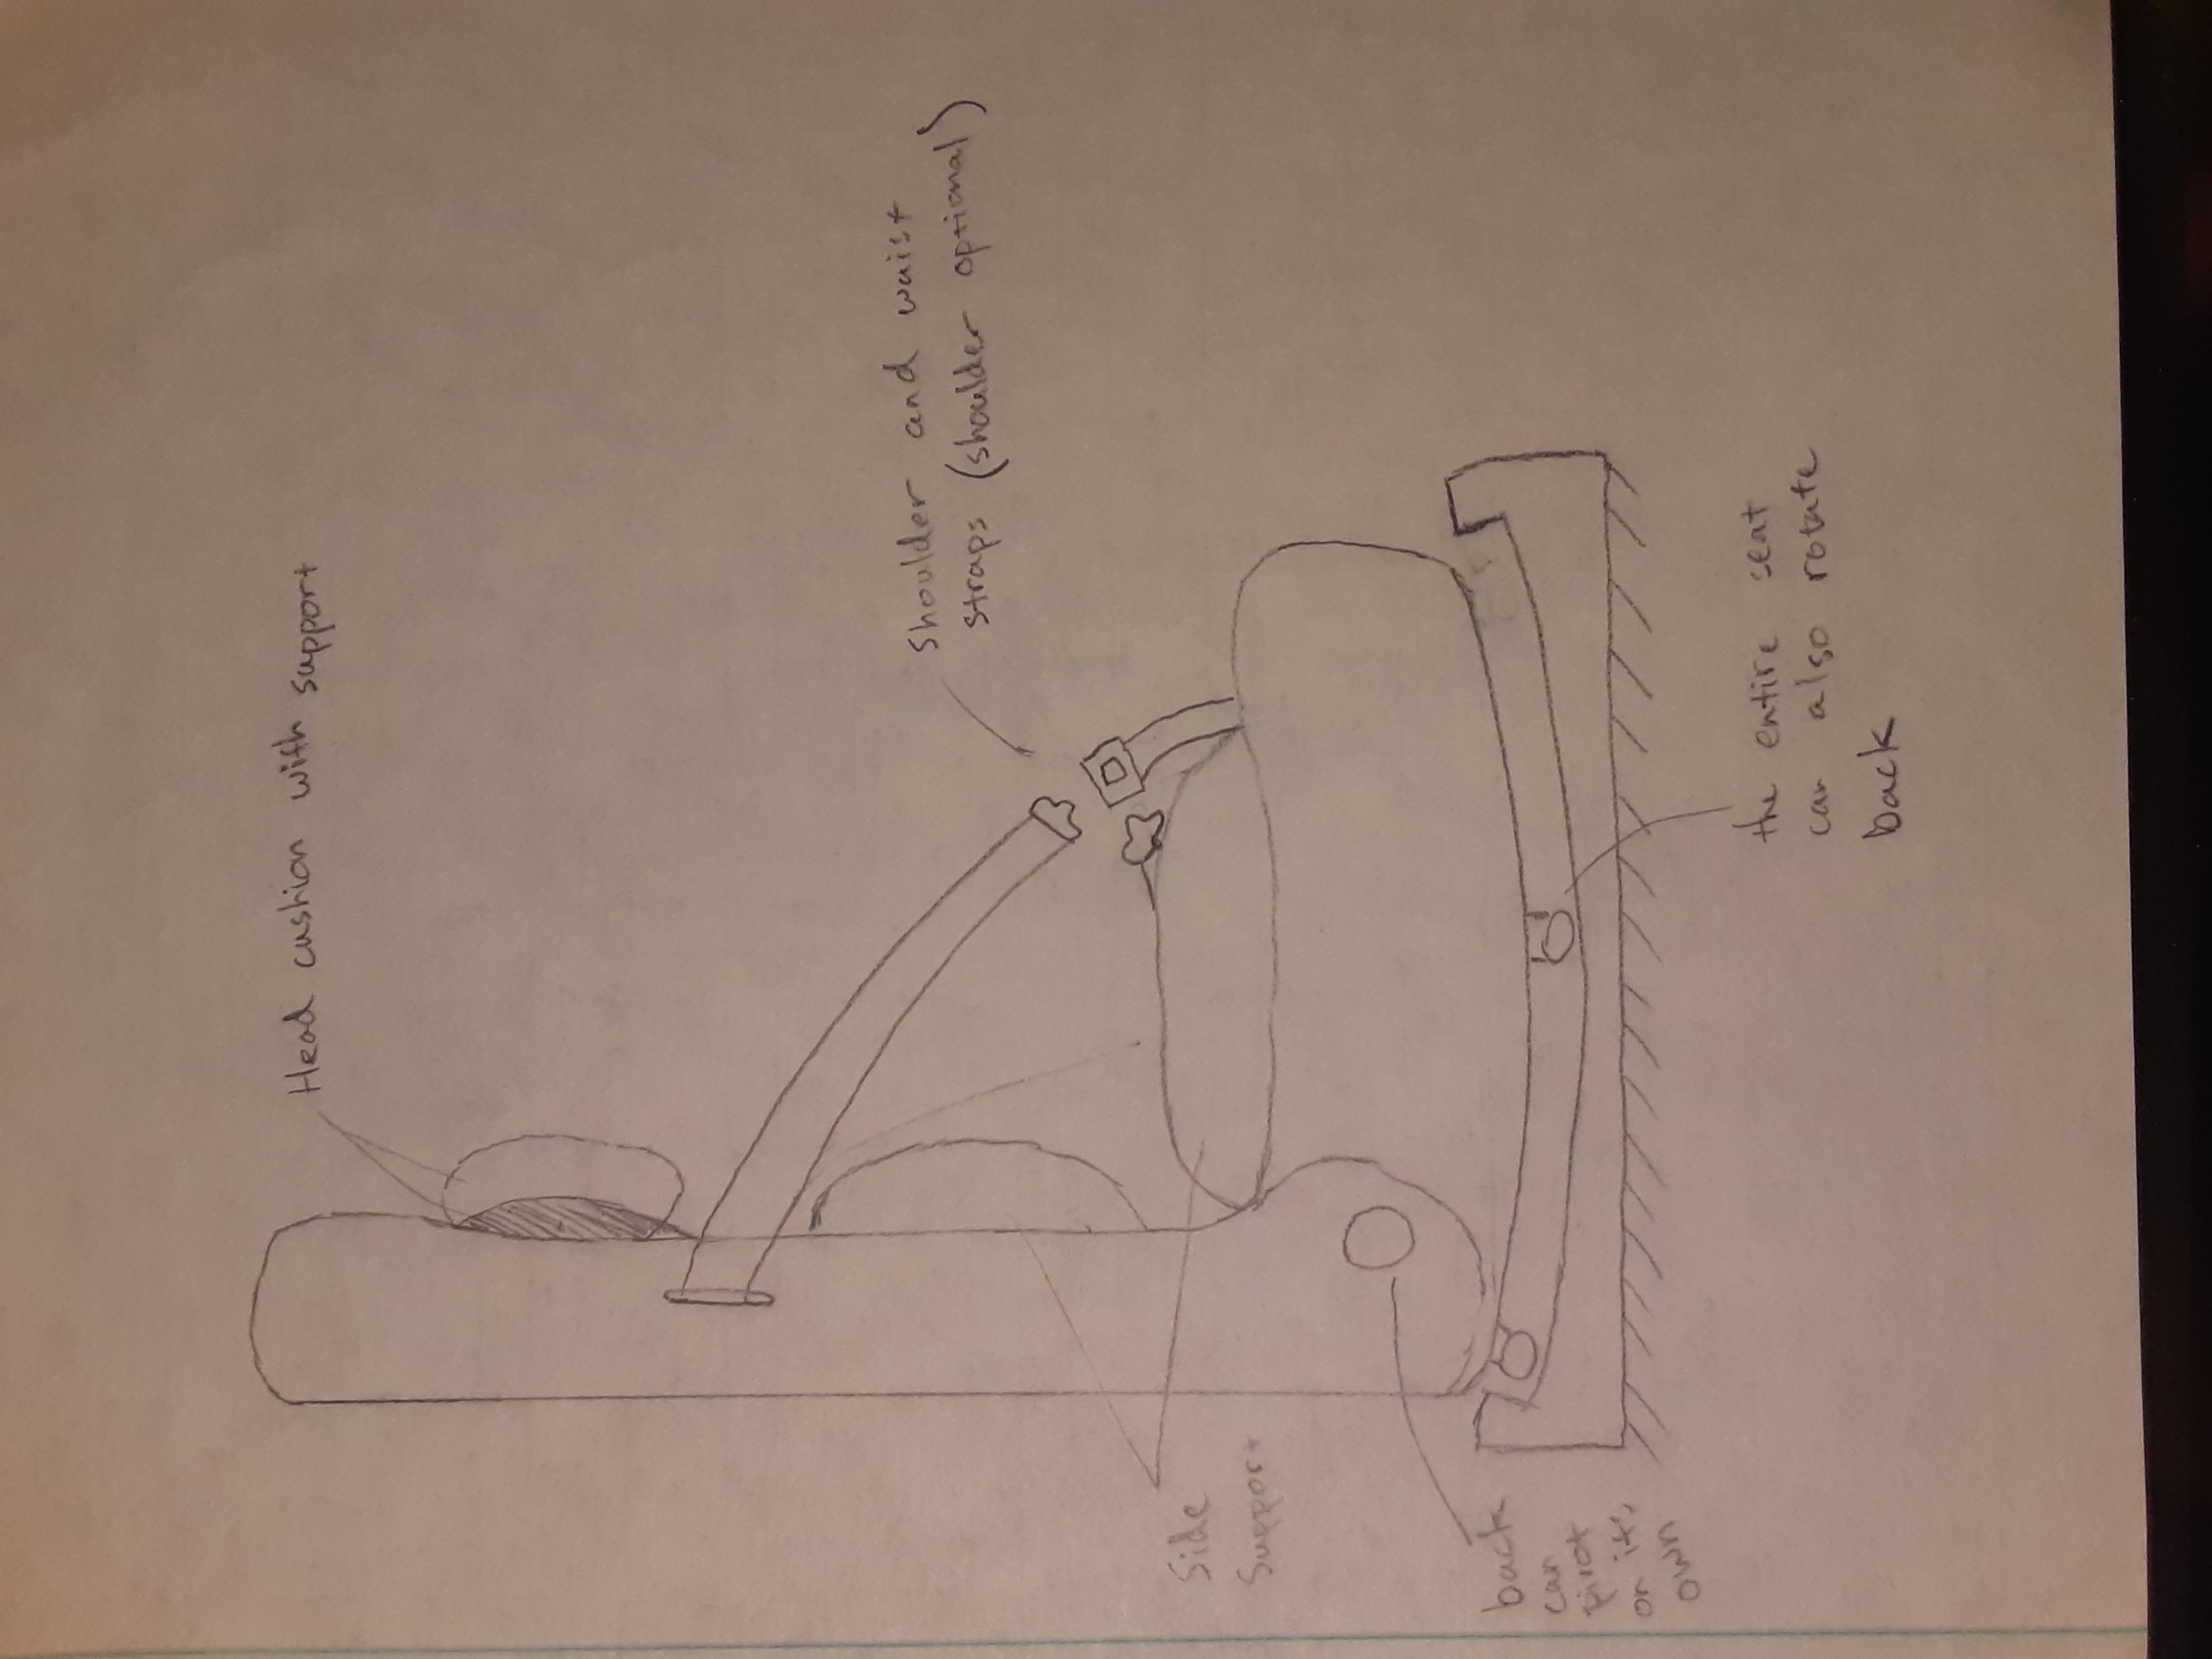 Head cushion with support
Shoulder and waist
straps (shoulder optional)
Side
Support
back
can
pivot
on it's
own
the entire seat
can also rotate
back